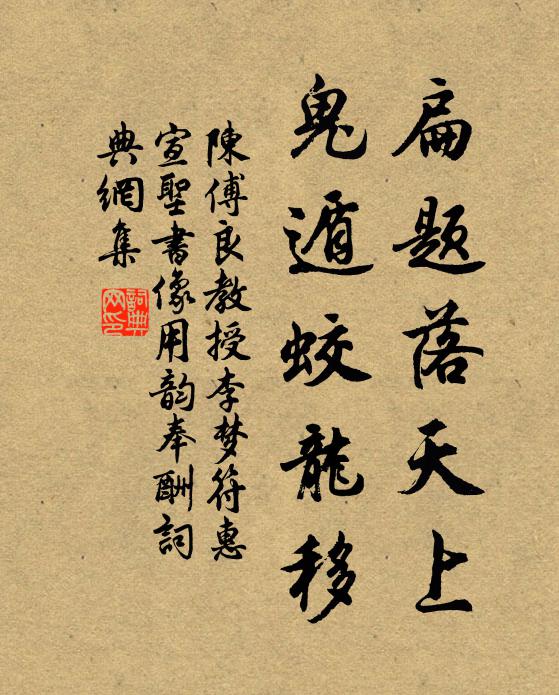 扁题落天上
鬼遁蛟龍移
陳傅良教授李梦符惠
宣聖書像用韵奉酬詞
典網集
詞典网印